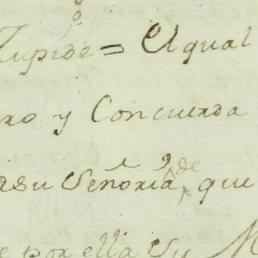 Zupide = El qual
ro y Concuerda
su Señoria, de que
por ella su M